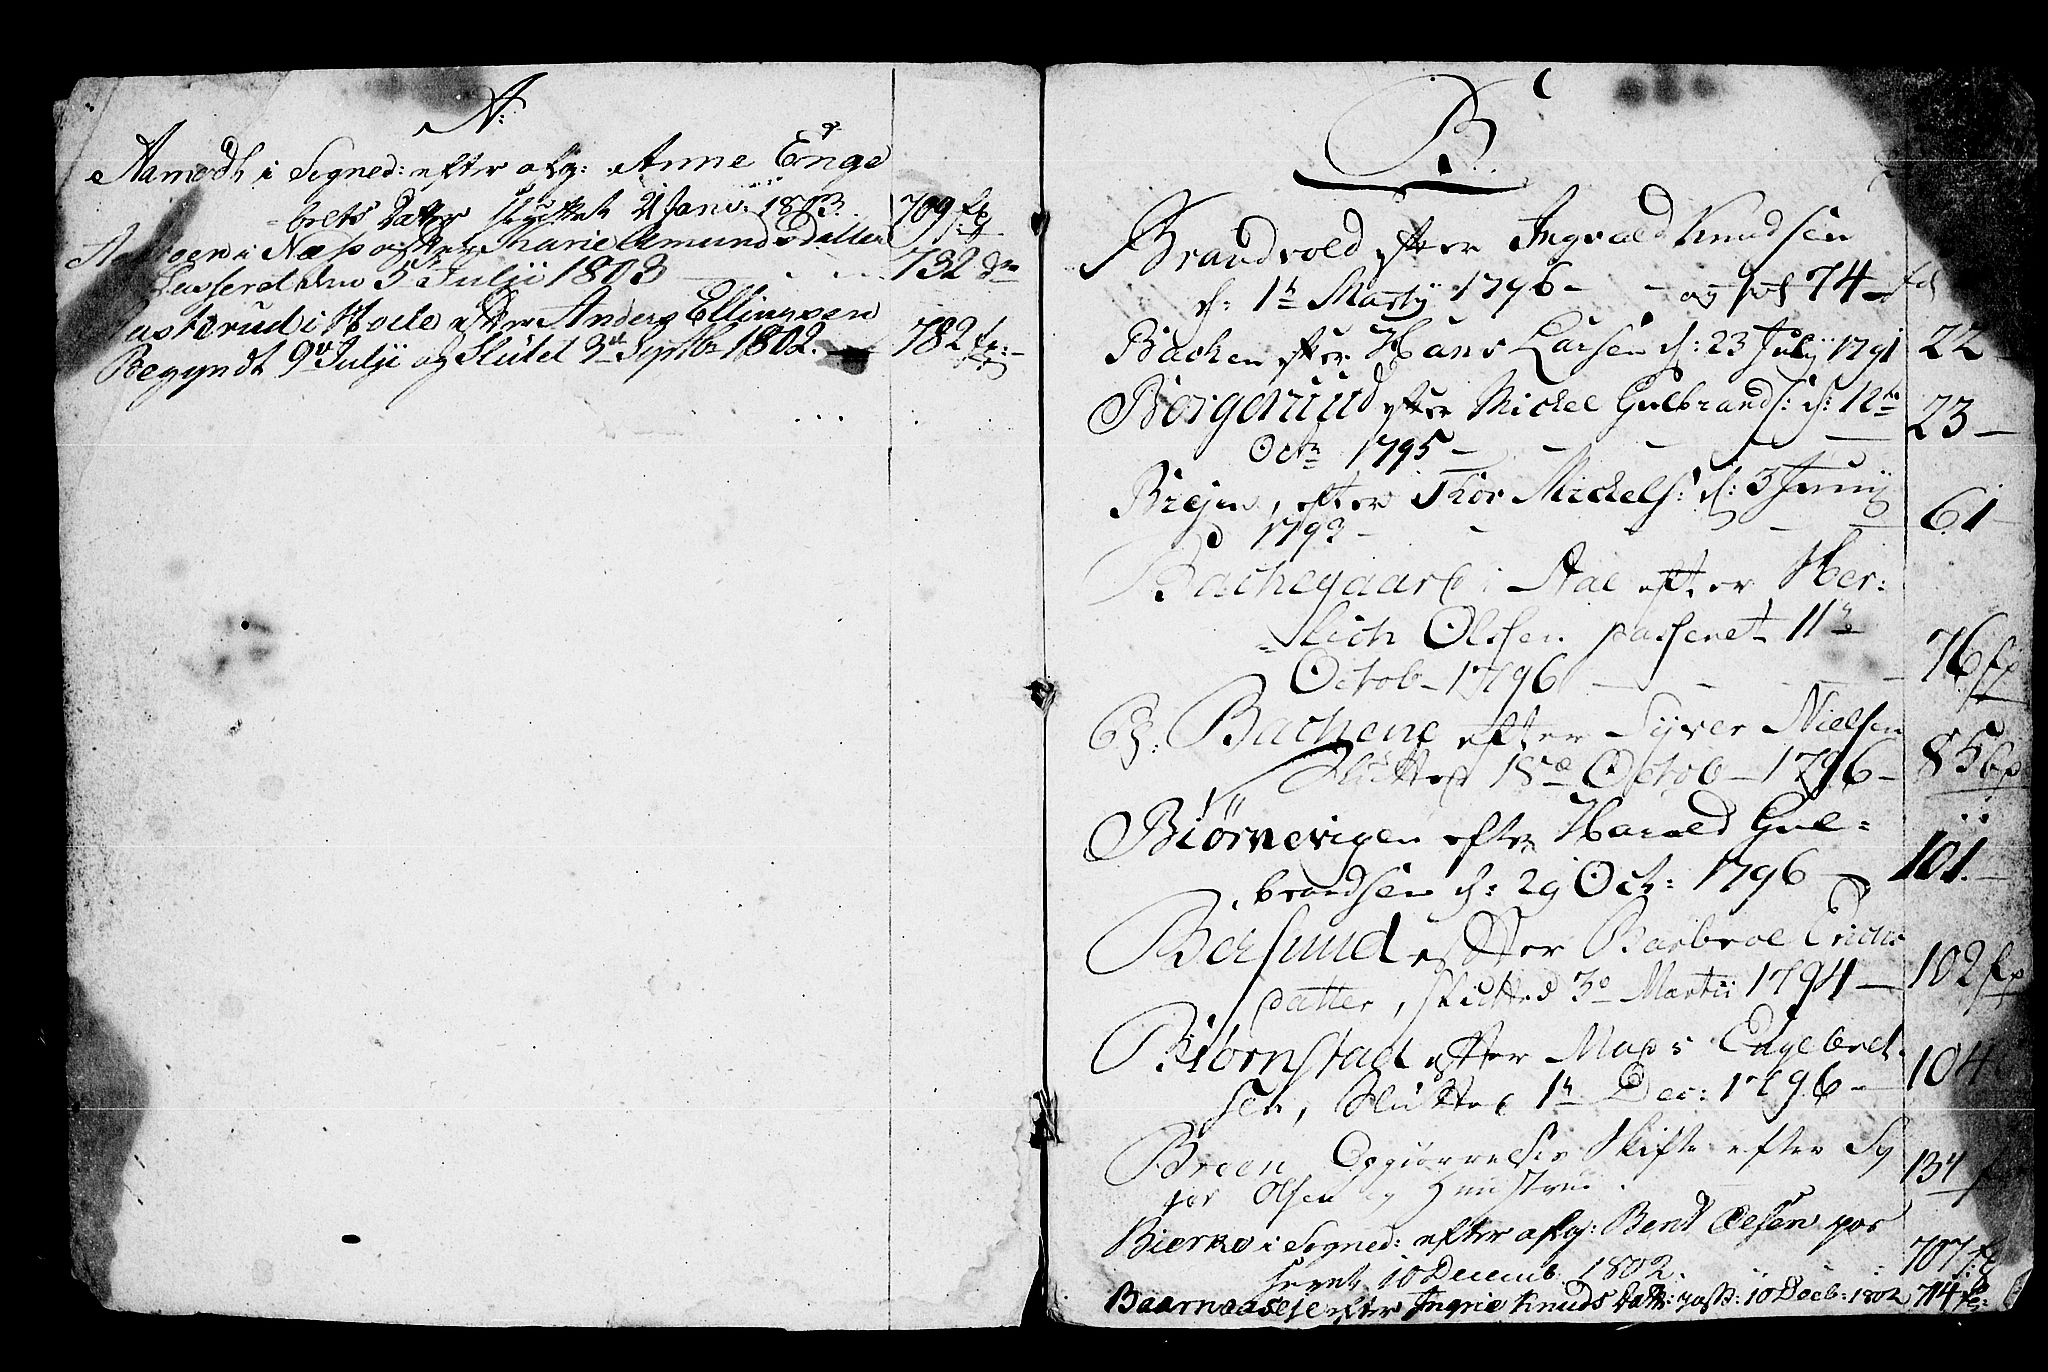 A:
Aamodh i Signed: efter afg: Anne Enge
brets datter skiftet 21 Janv: 1803. 709 fp
i Næs efter Marie Amunds datter
Passeret den 5 Julii 1803 732 do
i Hoele efter Anders Ellingsen
Begyndt 9de Julii og Slutet 3de Septbr 1802. 782 fp:
B.
Brandvold efter Ingvald Knudsen
d: 1te Martÿ 1796 - og fol 74 fp
Backen efter Hans Larsen d: 23 Julÿ 1791 22
Borgeruud efter Mickel Gulbrands: d: 12te 23
Octr 1795 -
Breyn, efter Thor Mickels: d: 3 Junÿ 61
1793 -
Bachegaard i Aal efter Her:
lich Olsen passeret 11te 76 fp
Octob - 1796
Bachene efter Syver Nielsen
Sluttet 18de Octob - 1796 - 85 fp
Biørnevigen efter Harald Gul=
brandsen d: 29 Oct: 1796 - 101. -
Bersund efter Barbroe Erichs
datter, slutted 3de Martii 1794 - 102 fp
Biørnstad efter Mads Engebret
sen, Sluttet 1te Dec: 1796 - 104
Breen Opgiørrelse Skifte efter Sy 134
ver Olsen og Hustrue.
Bierke i Signed: efter afg: Bent Olsen pas
seret 10 Decemb: 1802. 707 fp
Baarnaase efter Ingrie Knuds datt: pass: 10 Decb: 1802 714 fp: